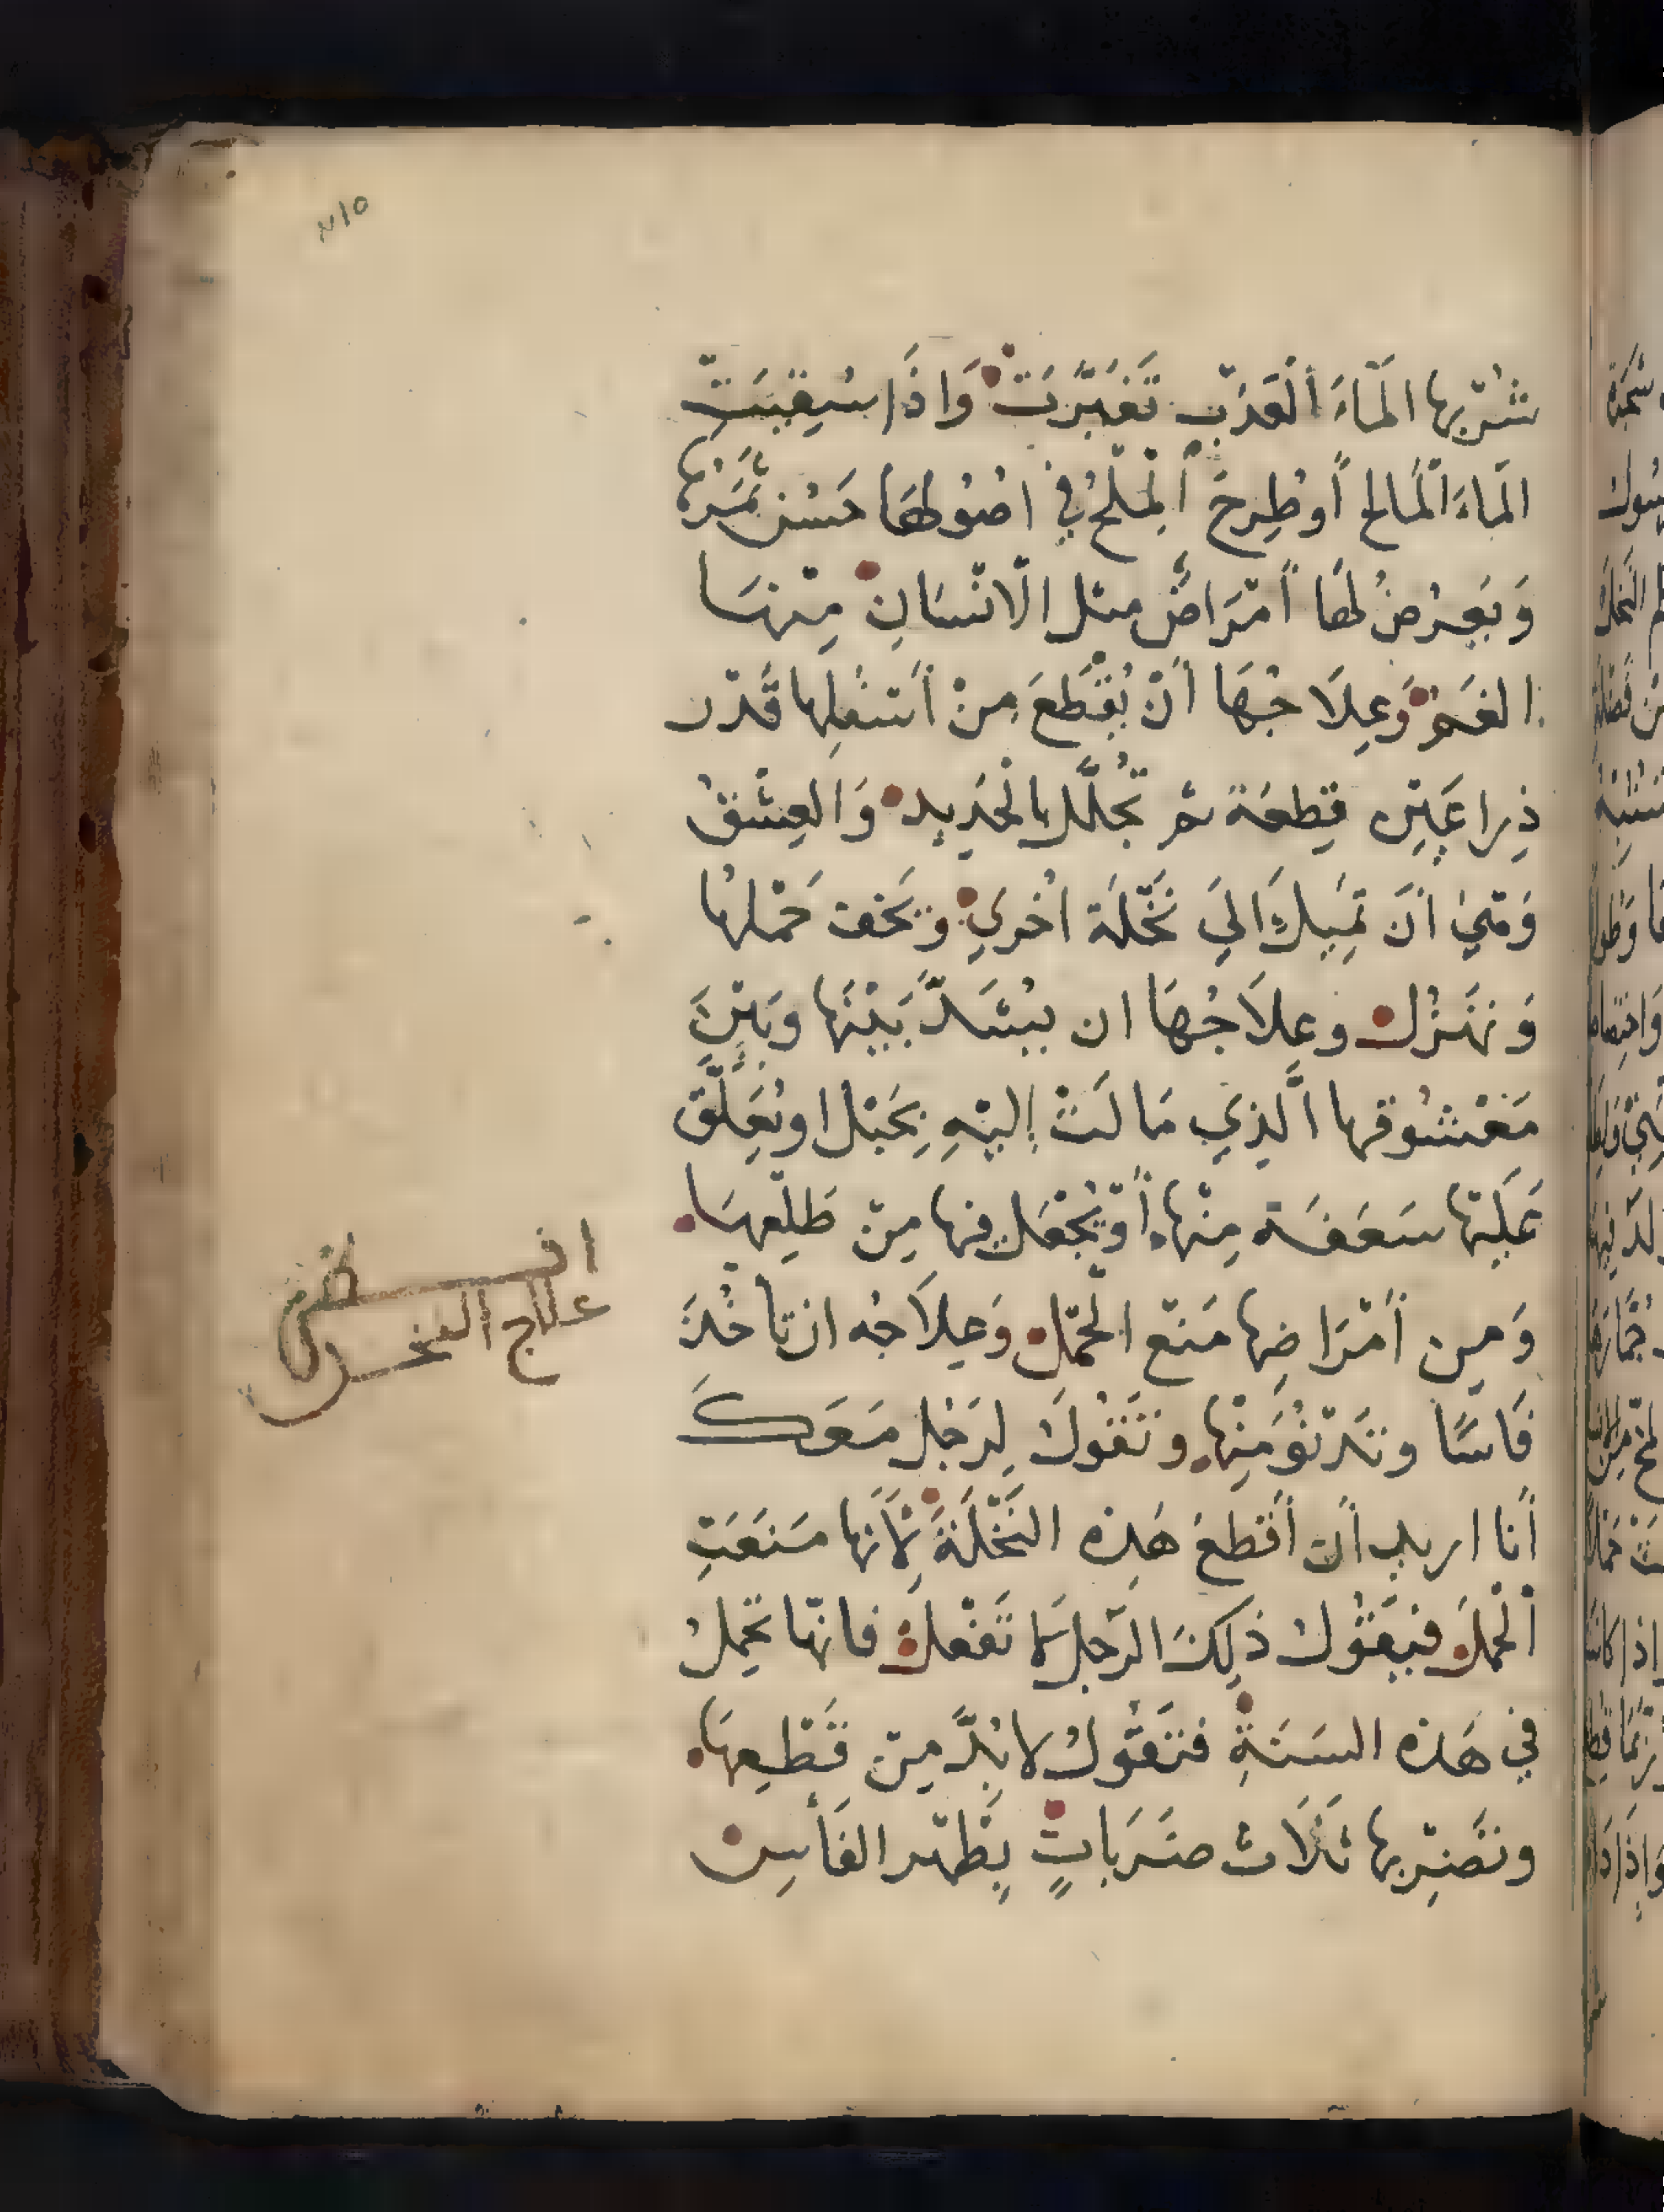 ٢١٥
شُرْبِها المَاءَ الْعَذْبِ تَغَيَّرَتْ وَاذَا سُقِيَتْ
المَاءَ الْمَالح أو طُرِحَ الْمِلْحُ في اصُولِهَا حَسُنَ ثَمَرُهَا
وَيَعْرِضُ لهَا أمْرَاضٌ مثل الانْسَانِ مِنْهَا
الغَمّ وَعِلَاجُهَا أَنْ يُقْطَعَ مِنْ أَسْفَلِها قَدْر
ذِراعَيْنِ قِطعَة ثم تُجَلَّل بالْحَدِيد وَالعِشْقُ
وَهَيَ أَنَّ تَمِيلَ الَيَ نَخْلَة اخْرَيِ وَيَخف حَمْلها
وَتهْزُل وعِلَاجُهَا ان يُشَدَّ بَيْنَها وَبَيْنَ
مَعْشُوقها الَّذِي مَالَتْ إليْهِ بِحَبْل او يُعَلَّق
عَلَيْها سَعَفَة مِنْها أَوْ يُجْعَل فيها مِنْ طَلْعِهَا
وَمِن أَمْرَاضِها مَنْع الْحَمْل وَعِلَاجُه ان تاخُذَ
فَاسًا وتَدْنُوَ مِنْها وتَقُولَ لِرَجُل مَعَكَ
أنا اريد أن أقْطعَ هَذِه النَّخْلَةَ لأنها مَنَعَتِ
الْحملَ فيَقُول ذلِكَ الرَّجل لا تَفْعلْ فانّها تحْمِلُ
في هَذه السَنَةِ فتَقُولُ لا بُدَّ مِنْ قَطْعِهَا
وتَضْرِبها ثَلَاث ضَرَبَاتٍ بِظَهْر الفَأسِ
علاج النخل